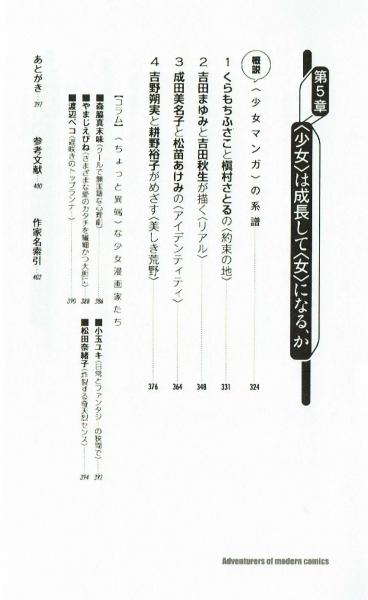 第5章
〈少女〉は成長して〈女〉になる、か
概説 〈少女マンガ〉の系譜 324
1 くらもちふさこと槇村さとるの〈約束の地〉 331
2 吉田まゆみと吉田秋生が描く〈リアル〉 348
3 成田美名子と松苗あけみの〈アイデンティティ〉 364
4 吉野朔実と耕野裕子がめざす〈美しき荒野〉 376
【コラム】〈ちょっと異端〉な少女漫画家たち
■森脇真末味〈クールで無国籍な心理劇〉 386
■やまじえびね〈さまざまな愛のカタチを繊細かつ大胆に〉 388
■渡辺ペコ〈遅咲きのトップランナー〉 390
■小玉ユキ〈日常とファンタジーの狭間で〉 392
■松田奈緒子〈炸裂する奇天烈センス〉 394
あとがき 397
参考文献 400
作家名索引 402
Adventurers of modern comics